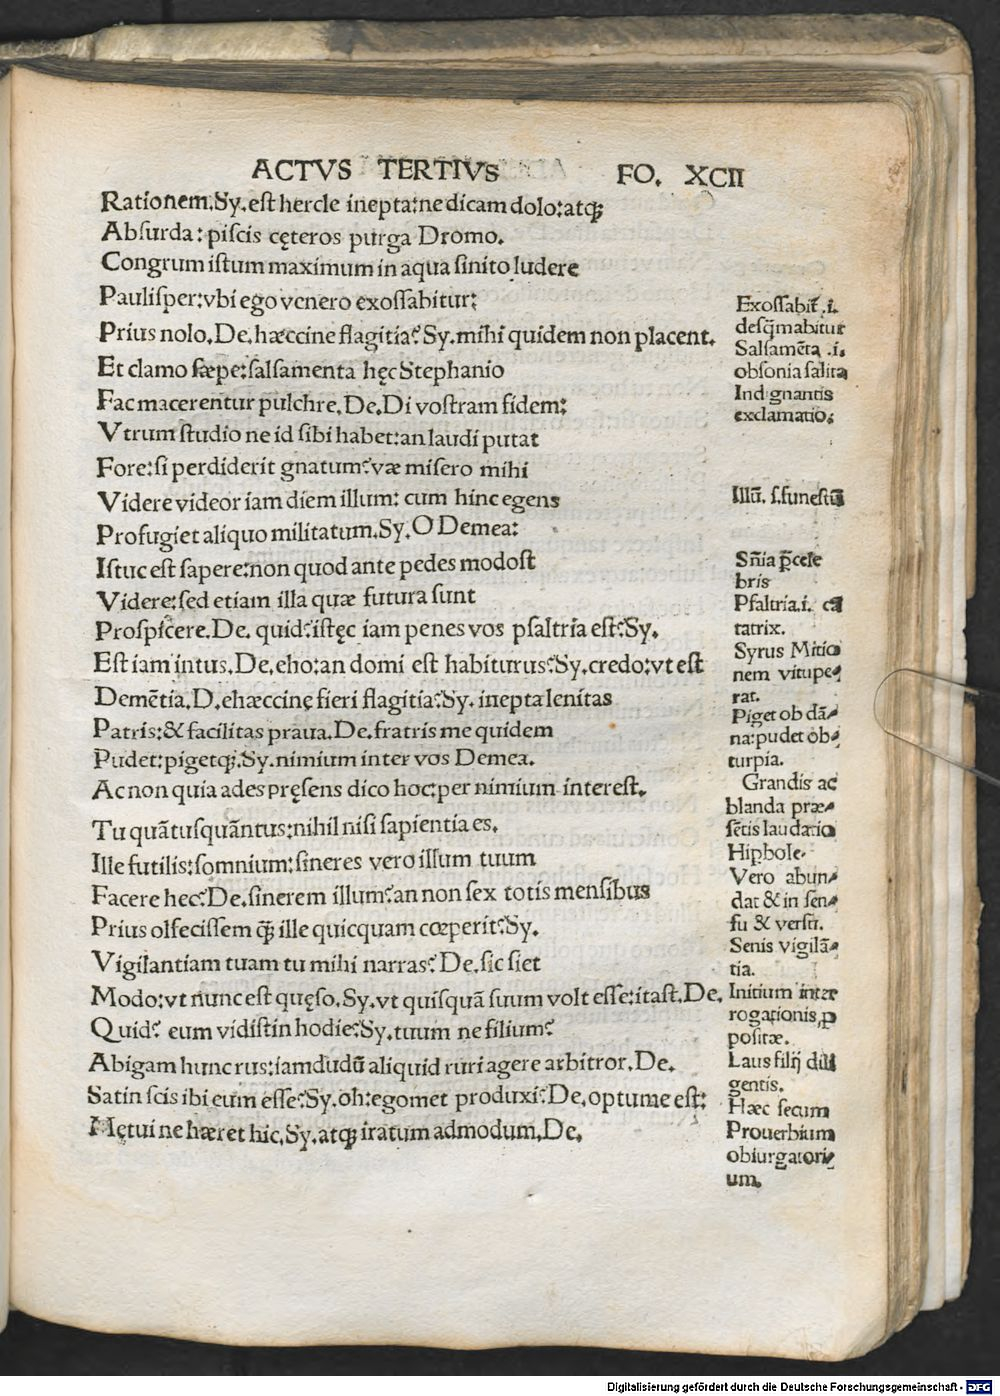 ACTVS TERTIVS FO. XCII
Rationem.Sy.est hercle inepta:ne dicam dolo:atqꝫ
Absurda: piscis cęteros purga Dromo.
Congrum istum maximum in aqua sinito ludere
Paulisper:vbi ego venero exossabitur:
Prius nolo.De.hæccine flagitia?Sy.mihi quidem non placent.
Et clamo sæpe:salsamenta hęc Stephanio
Fac macerentur pulchre.De.Di vostram fidem:
Vtrum studio ne id sibi habet:an laudi putat
Fore:si perdiderit gnatum?væ misero mihi
Videre videor iam diem illum: cum hinc egens
Profugiet aliquo militatum.Sy.O Demea:
Istuc est sapere:non quod ante pedes modost
Videre:sed etiam illa quæ futura sunt
Prospicere.De. quid?istęc iam penes vos psaltria est?Sy.
Est iam intus.De.eho:an domi est habiturus?Sy.credo:vt est
Demẽtia.D.ehæccinę fieri flagitia?Sy. inepta lenitas
Patris:& facilitas praua.De.fratris me quidem
Pudet:pigetqꝫ.Sy.nimium inter vos Demea.
Ac non quia ades pręsens dico hoc:per nimium interest.
Tu quãtusquãntus:nihil nisi sapientia es.
Ille futilis:somnium:sineres vero illum tuum
Facere hec?De.sinerem illum?an non sex totis mensibus
Prius olfecissem q̃ꝫ ille quicquam cœperit?Sy.
Vigilantiam tuam tu mihi narras? De.sic siet
Modo:vt nunc est quęso.Sy.vt quisquã suum volt esse:itast.De.
Quid? eum vidistin hodie?Sy.tuum ne filium?
Abigam hunc rus:iamdudũ aliquid ruri agere arbitror.De.
Satin scis ibi eum esse?Sy.oh:egomet produxi?De.optume est:
Mętui ne hæret hic.Sy.atqꝫ iratum admodum.De.
Exossabit̃ .i.
desq̃mabitur
Salsamẽta .i.
obsonia salita
Indignantis
exclamatio.
Illũ. s.funestũ
Sñia p̃cele
bris
Psaltria.i. cã
tatrix.
Syrus Mitio
nem vitupe-
rat.
Piget ob dã-
na:pudet ob-
turpia.
Grandis ac
blanda præ-
sẽtis laudatio
Hipbole.
Vero abun-
dat & in sen-
su & versu.
Senis vigilã-
tia.
Initium inter
rogationis ꝓ
positæ.
Laus filij dili
gentis.
Hæc secum
Prouerbium
obiurgatori-
um.
Digitalisierung gefördert durch die Deutsche Forschungsgemeinschaft - DFG